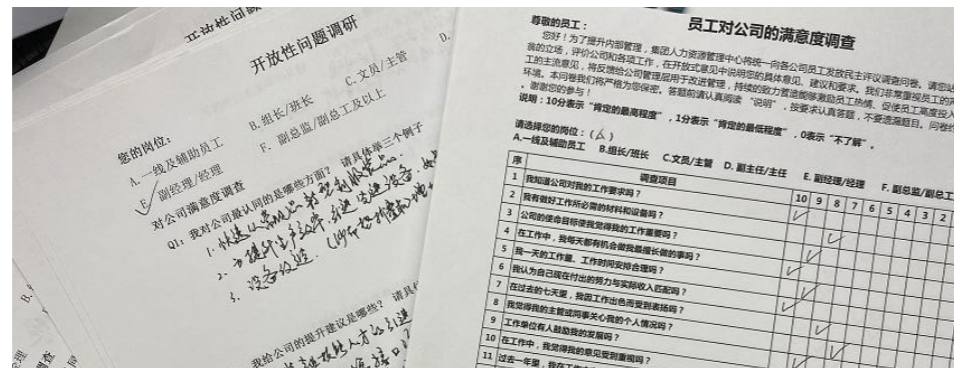 开放性问题调研
您的岗位：
A. 一线及辅助员工
B. 组长/班长
C. 文员/主管
D.
E. 副经理/经理
F. 副总监/副总工及以上
对公司满意度调查
Q1: 我对公司最认同的是哪些方面？ 请具体举三个例子
3. 设备改造.
我给公司的提升建议是哪些？ 请具
员工对公司的满意度调查
尊敬的员工：
您好！为了提升内部管理，集团人力资源管理中心将统一向各公司员工发放民主评议调查问卷。请您站
翁的立场，评价公司和各项工作，在开放式意见中说明您的具体意见、建议和要求。我们非常重视员工的声
工的主流意见，将反馈给公司管理层用于改进管理，持续的致力营造能够激励员工热情、促使员工高度投入
环境。本问卷我们将严格为您保密。答题前请认真阅读“说明”，按要求认真答题，不要遗漏题目。问卷约
。谢谢您的参与！
说明：10分表示“肯定的最高程度”，1分表示“肯定的最低程度”，0表示“不了解”。
请选择您的岗位：（A）
A.一线及辅助员工 B.组长/班长 C.文员/主管 D. 副主任/主任 E. 副经理/经理 F. 副总监/副总工
序 调查项目 10 9 8 7 6 5 4 3 2
1 我知道公司对我的工作要求吗？
2 我有做好工作所必需的材料和设备吗？
3 公司的使命目标使我觉得我的工作重要吗？
4 在工作中，我每天都有机会做我最擅长做的事吗？
5 我一天的工作量、工作时间安排合理吗？
6 我认为自己现在付出的努力与实际收入匹配吗？
7 在过去的七天里，我因工作出色而受到表扬吗？
8 我觉得我的主管或同事关心我的个人情况吗？
9 工作单位有人鼓励我的发展吗？
10 在工作中，我觉得我的意见受到重视吗？
11 过去一年里，我在工作